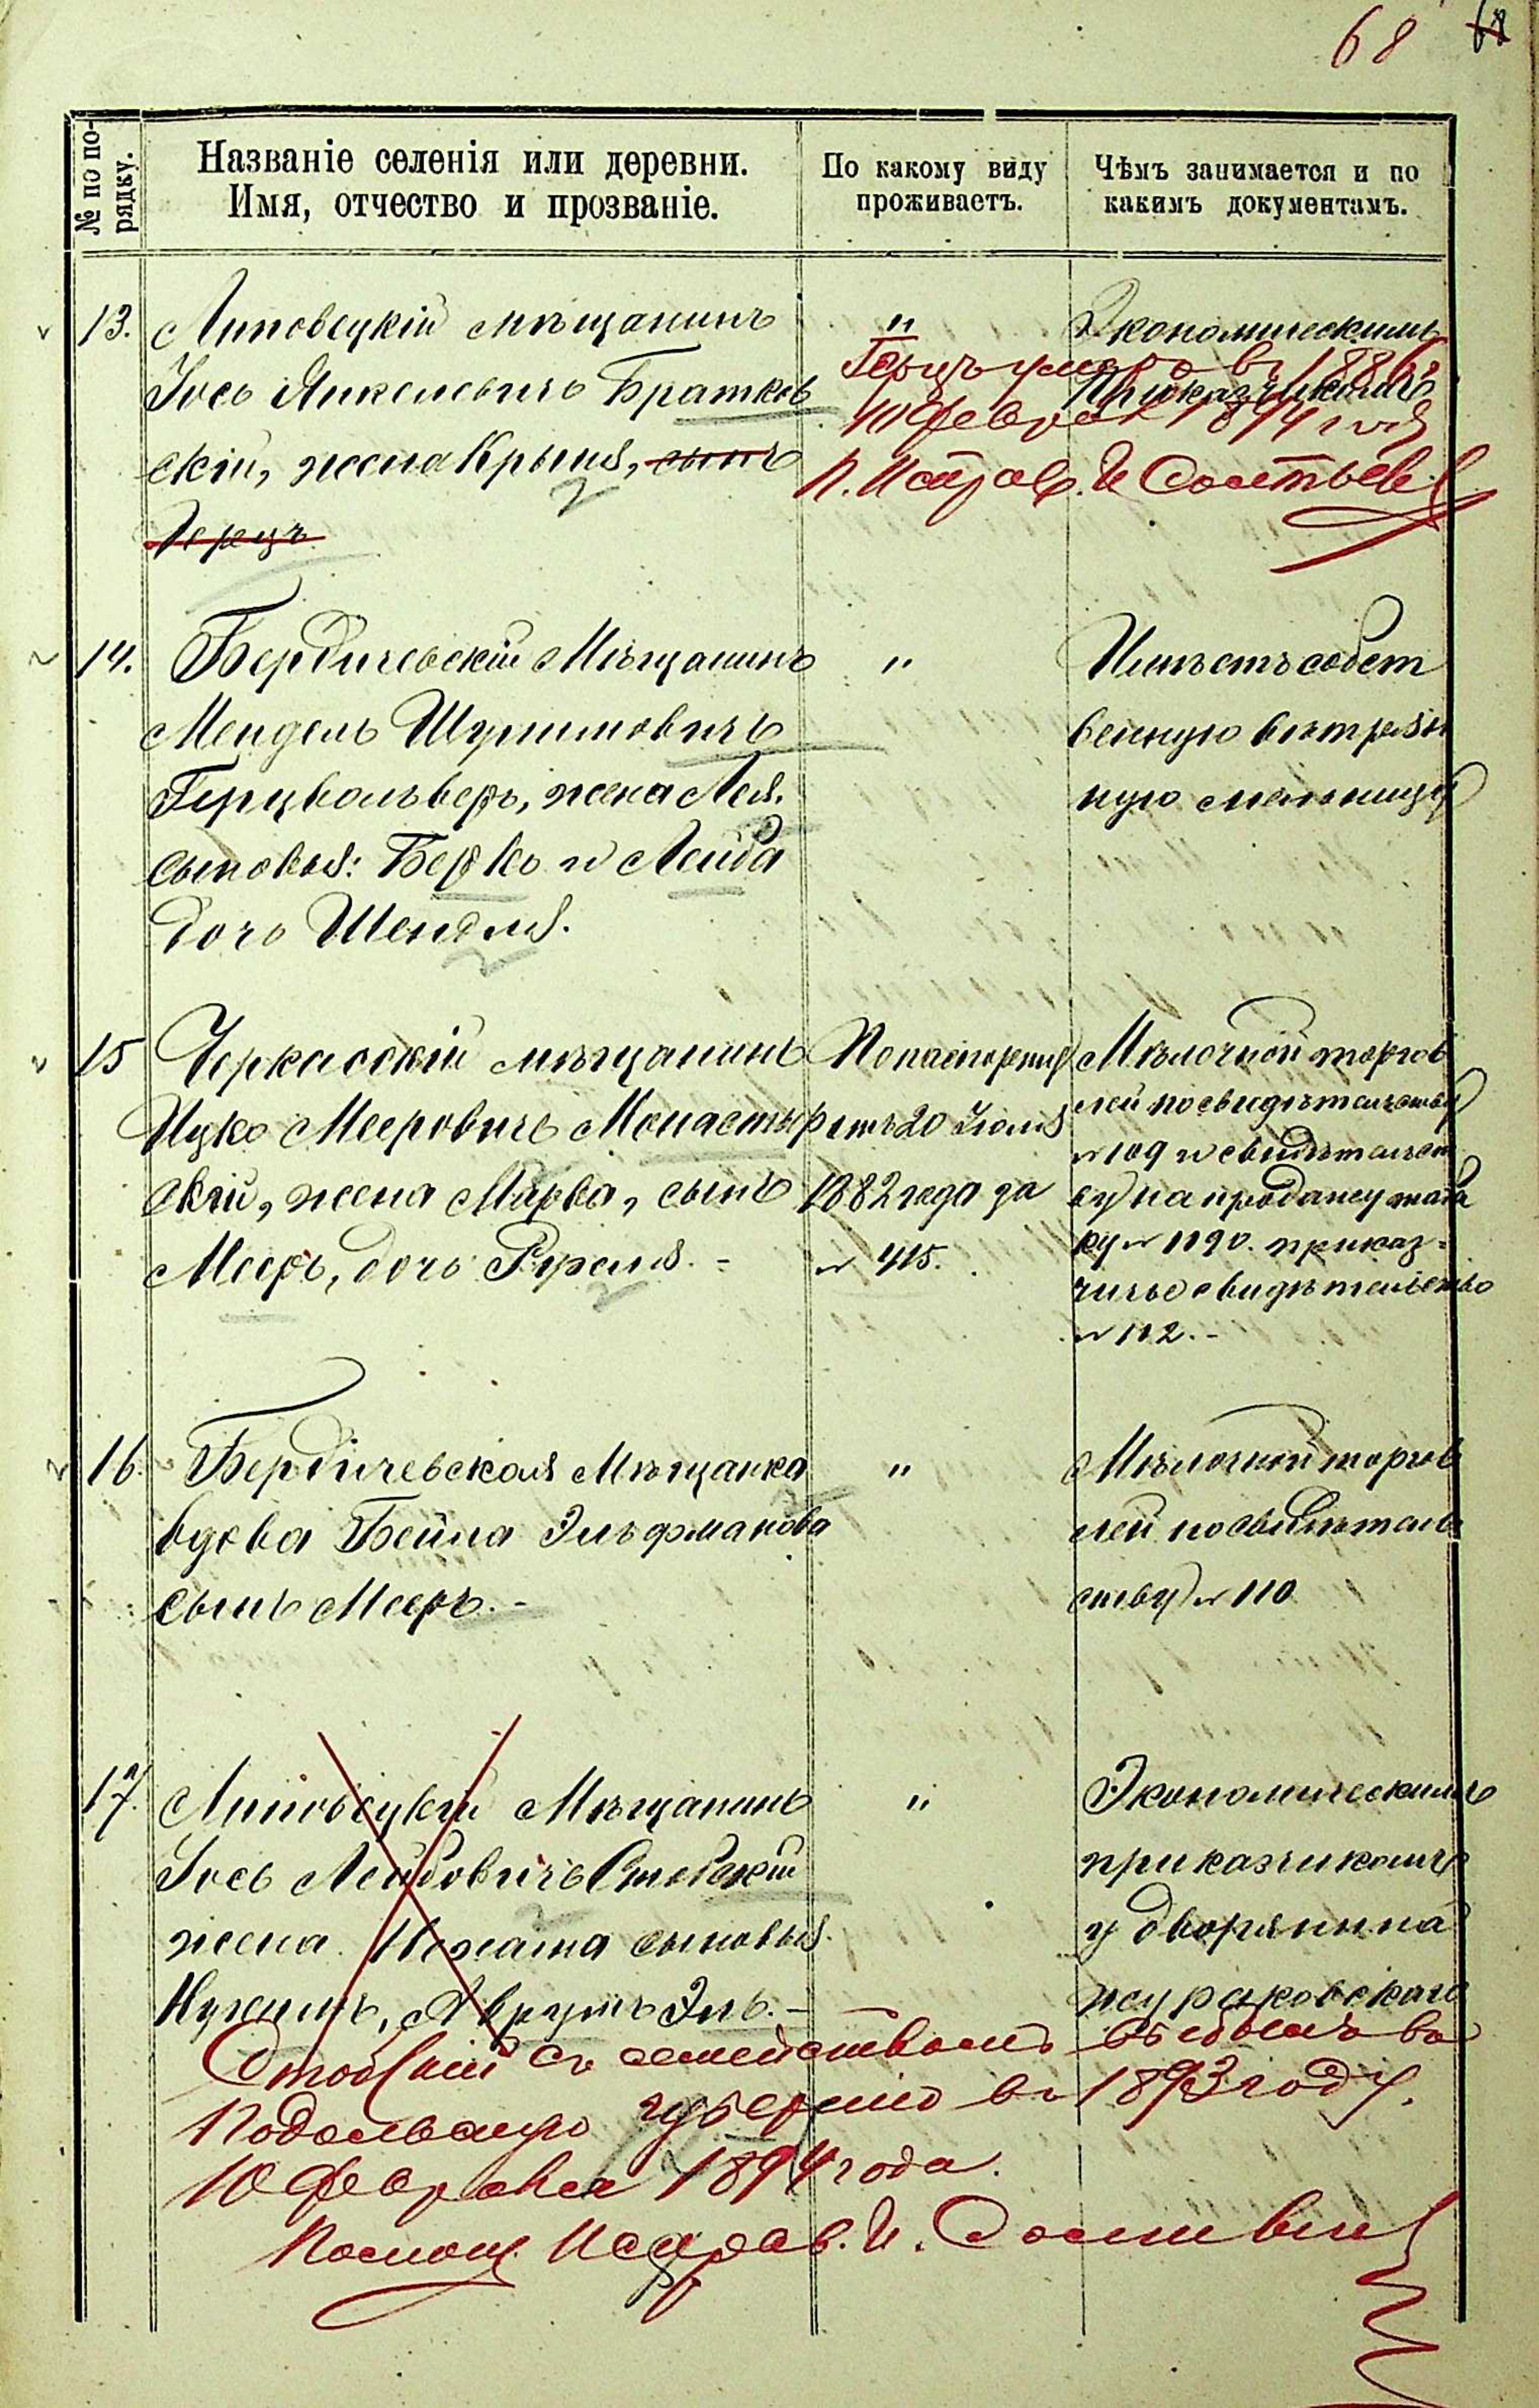 68
№ по по-
рядку.
Названіе селенія или деревни.
Имя, отчество и прозваніе.
По какому виду
проживаетъ.
Чѣмъ занимается и по
какимъ документамъ.
13. Липовецкій мѣщанинъ
Іось Янкелевичъ Братков
скій, жена Крыня, сынъ
Герцъ
"
Экономическимъ
Прикащикомъ
Герцъ умеръ въ 1886 г.
10 Февраля 1894 года
П. Исправ. И
14. Бердичевскій Мѣщанинъ
Мендель Шулимовичъ
Герцвольверъ, жена Лея.
сыновья: Берко и Лейба
дочь Шендля.
"
Имѣетъ собст
венную вѣтрян
ную мельницу
15 Черкасскій мѣщанинъ
Ицко Мееровичъ Монастыр
скій, жена Марва, сынъ
Мееръ, дочь Рухля. -
По паспорту
отъ 20 Іюля
1882 года за
№ 415.
Мѣлочной торгов
лей по свидѣтельству
№ 109 и свидѣтельст
ву на продажу таба
ку № 1190. приказ-
чичье свидѣтельство
№ 112. -
16. Бердичевская Мѣщанка
вдова Бейла Эльфманова
сынъ Мееръ. -
"
Мѣлочной торгов
лей по свидѣтель
ству № 110
17. Липовецкій Мѣщанинъ
Іось Лейбовичъ
жена сыновья.
Нухимъ, Аврумъ Эль. -
"
Экономическимъ
приказчикомъ
у дворянина
Жураковскаго
съ семействомъ выбылъ въ
Подольскую губернію въ 1893 году.
10 Февраля 1894 года.
Помощ. Исправ. И.